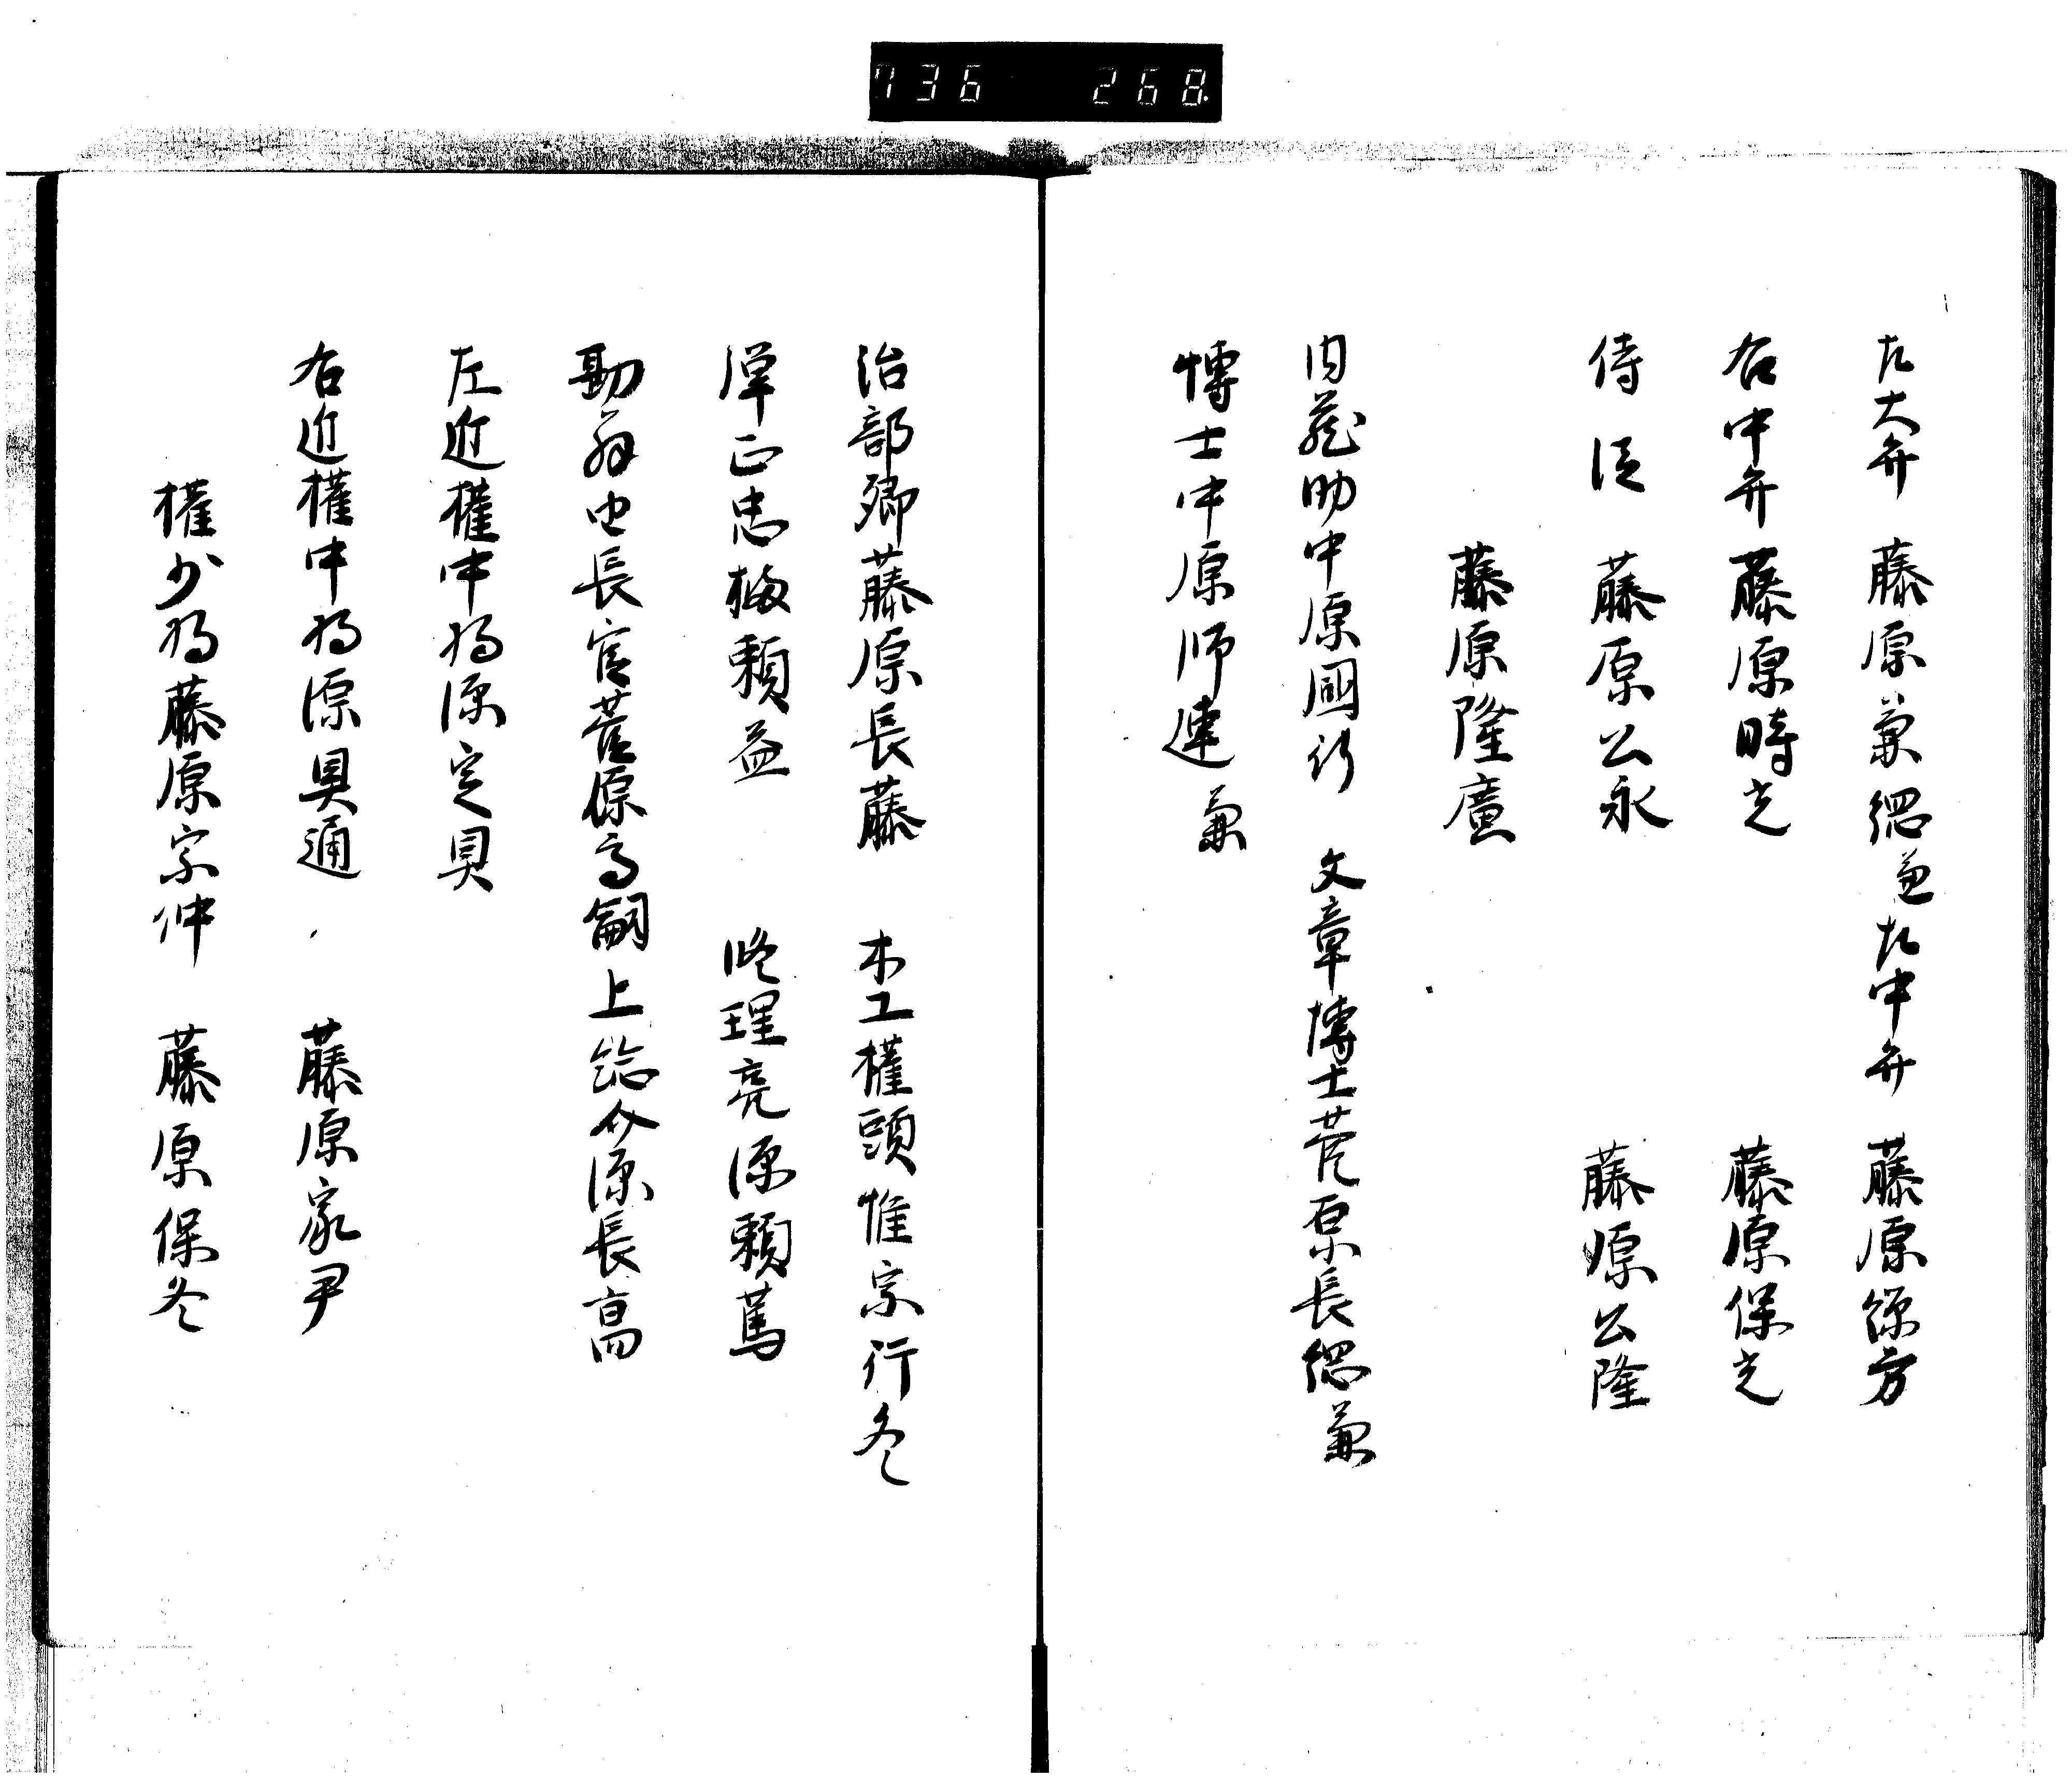 736 268
左大弁 藤原兼綱兼 左中弁 藤原仲方
右中弁 藤原時光 藤原保光
侍従 藤原公永 藤原公隆
藤原隆廣
内蔵助中原國行 文章博士菅原長綱兼
博士中原師連兼
治部卿藤原長藤 木工權頭惟宗行冬
弾正忠 頼益 修理亮源頼篤
勘解由長官菅原高嗣 上総介源長高
左近權中将源定具
右近權中将源具通 藤原家尹
權少将藤原宗仲 藤原保冬